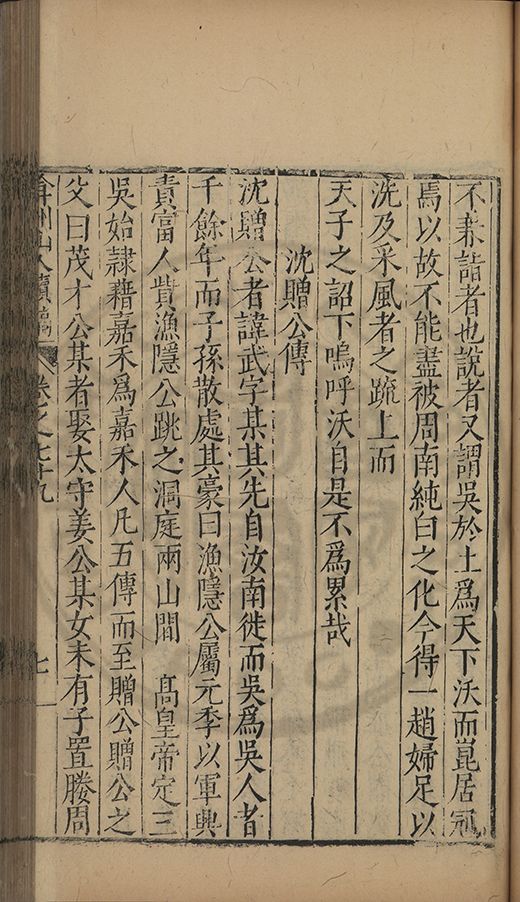 不兼詣者也說者又謂吳於土為天下沃而崑居冠
焉以故不能盡被周南純白之化今得一趙婦足以
洗及采風者之疏上而
天子之詔下嗚呼沃自是不為累哉
沈贈公傳
沈贈公者諱武字某其先自汝南徙而吳為吳人者
千餘年而子孫散處其豪曰漁隱公屬元季以軍興
責富人貲漁隱公跳之洞庭兩山間 高皇帝定三
吳始隷藉嘉禾為嘉禾人凡五傳而至贈公贈公之
父曰茂才公某者娶太守姜公某女未有子置媵周
弇州山人續稿 卷之七十九 七